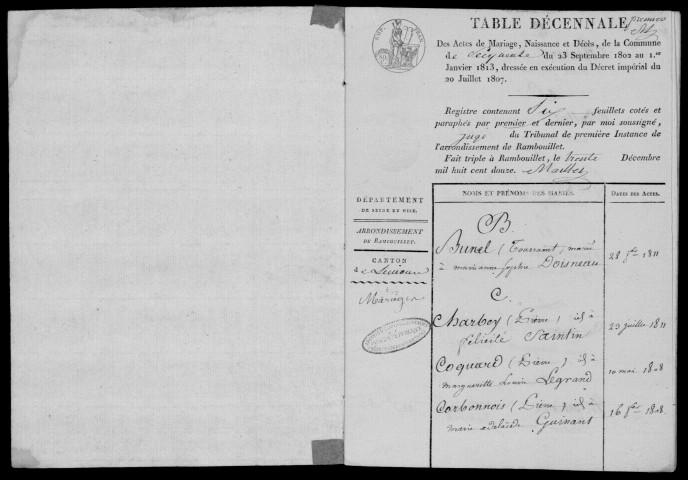 premier
TABLE DÉCENNALE
Des Actes de Mariage, Naissance et Décès, de la Commune
de Pecqueuse du 23 Septembre 1802 au 1.er
Janvier 1813, dressée en exécution du Décret impérial du
20 Juillet 1807.
Registre contenant Six feuillets cotés et
paraphés par premier et dernier, par moi soussigné,
juge du Tribunal de première Instance de
l'arrondissement de Rambouillet.
Fait triple à Rambouillet, le trente Décembre
mil huit cent douze.
DÉPARTEMENT
DE SEINE ET OISE.
ARRONDISSEMENT
DE RAMBOUILLET.
CANTON
de Limours
Mariages
NOMS ET PRÉNOMS DES MARIÉS.
DATES DES ACTES.
B.
Bunel (Toussaint) marié
à marie anne sophie Doisneau
28 1811
C.
Charboy (Pierre) id à
félicité Saintin
23 juillet 1811
Coquard (Pierre) id à
marguerite Louise Legrand
10 mai 1808
Corbonnois (Pierre) id à
marie adelaïde Guinant
16 1808.